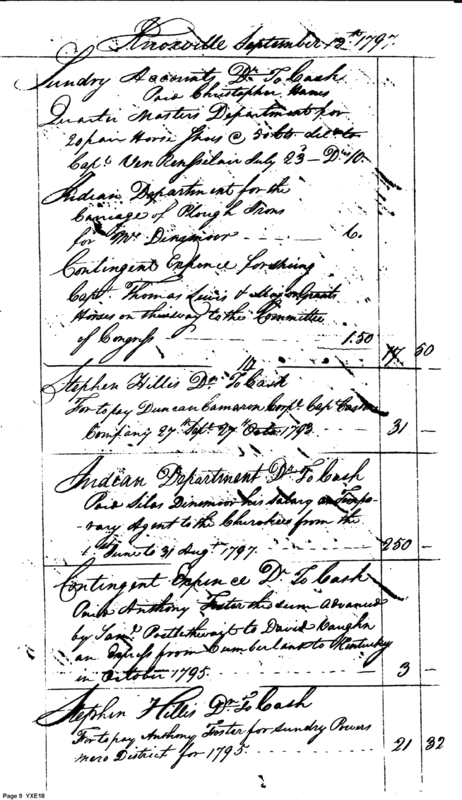 Knoxville September 13th 1797.
Sundry Accounts Dr. To Cash
Paid Christopher Hanes
Quarter Masters Department for
20 pair Horse Shoes @ 50 cts. deld. to
Capt. Van Rensselair July 23 — Ds. 10.
Indian Department for the
Carriage of Plough Irons
for Mr. Dinsmoor 6.
Contingent Expence for shoeing
Capt. Thomas Lewis & Major Grants
Horses on their way to the Committee
of Congress 1.50 17 50
14.
Stephen Hillis Dr. To Cash
For to pay Duncan Camaron Corpl. Cap
Company 27th Sept. 27th Octo. 1793 31 —
Indean Department Dr. To Cash
Paid Silas Dinsmoor his salary as Tempo-
rary Agent to the Cherokees from the
1st June to 31 Augt. 1797. 250 —
Contingent Expence Dr. To Cash
Paid Anthony Foster the sum advanced
by Saml. Postlethwayt to David Vaughn
an Express from Cumberland to Kentucky
in October 1795. 3 —
Stephen Hillis Dr. To Cash
For to pay Anthony Foster for sundry Powers
mero District for 1795. 21 82
Page 9 YXE18